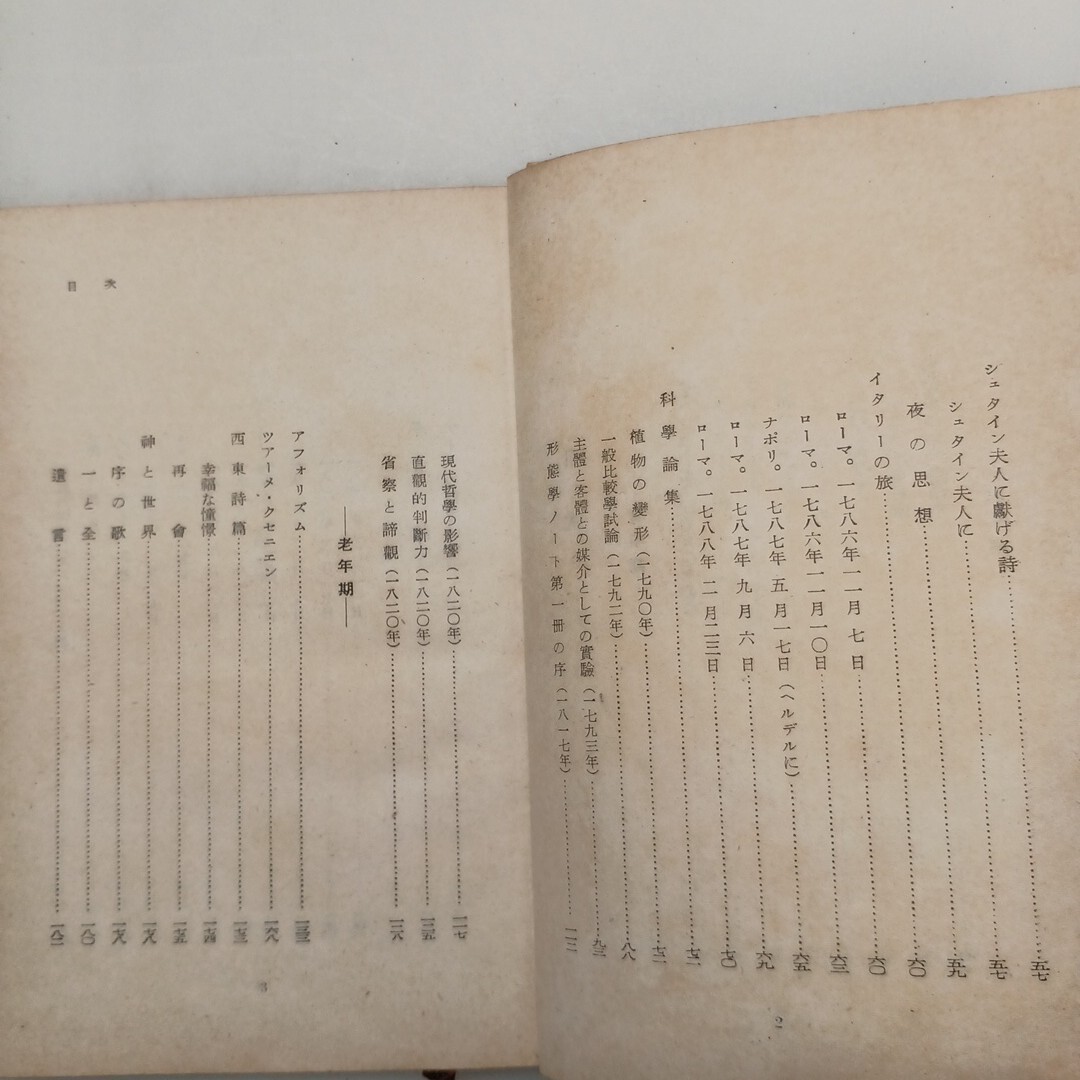 シュタイン夫人に獻げる詩……五七
シュタイン夫人に……五七
夜の思想……五九
イタリーの旅……六〇
ローマ。一七八六年一一月七日……六〇
ローマ。一七八六年一一月一〇日……六三
ナポリ。一七八七年五月一七日(ヘルデルに)……六五
ローマ。一七八七年九月六日……六九
ローマ。一七八八年二月二三日……七〇
科學論集……七二
植物の變形(一七九〇年)……七二
一般比較學試論(一七九二年)……八八
主體と客體との媒介としての實驗(一七九三年)……九三
形態學ノート第一冊の序(一八一七年)……一一二
2
目次
現代哲學の影響(一八二〇年)……一一七
直觀的判斷力(一八二〇年)……一二五
省察と諦觀(一八二〇年)……一二八
―老年期―
アフォリズム
ツアーメ・クセニエン
西東詩篇
幸福な憧憬
再會
神と世界
序の歌
一と全……一八〇
遺言……一八二
3